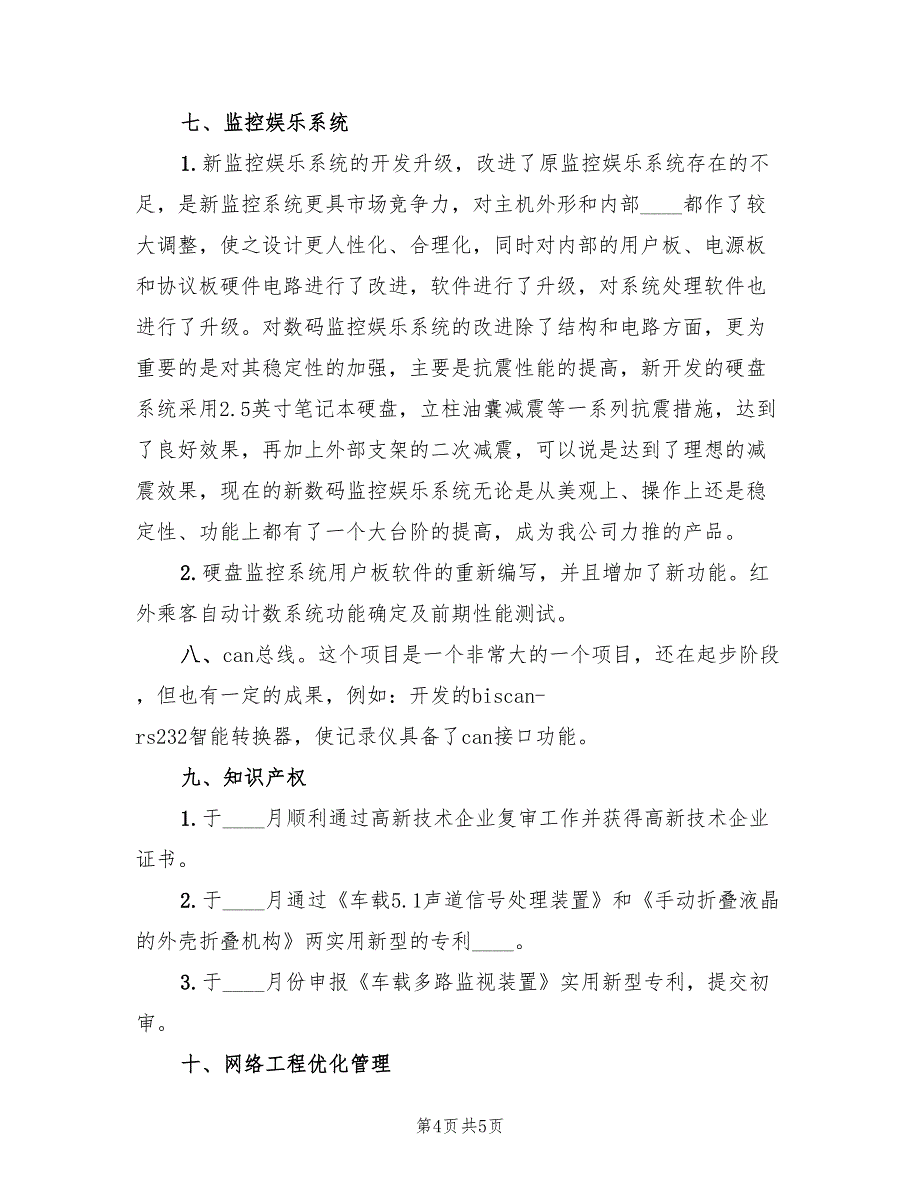 七、监控娱乐系统
1.新监控娱乐系统的开发升级，改进了原监控娱乐系统存在的不
足，是新监控系统更具市场竞争力，对主机外形和内部____都作了较
大调整，使之设计更人性化、合理化，同时对内部的用户板、电源板
和协议板硬件电路进行了改进，软件进行了升级，对系统处理软件也
进行了升级。对数码监控娱乐系统的改进除了结构和电路方面，更为
重要的是对其稳定性的加强，主要是抗震性能的提高，新开发的硬盘
系统采用2.5英寸笔记本硬盘，立柱油囊减震等一系列抗震措施，达到
了良好效果，再加上外部支架的二次减震，可以说是达到了理想的减
震效果，现在的新数码监控娱乐系统无论是从美观上、操作上还是稳
定性、功能上都有了一个大台阶的提高，成为我公司力推的产品。
2.硬盘监控系统用户板软件的重新编写，并且增加了新功能。红
外乘客自动计数系统功能确定及前期性能测试。
八、can总线。这个项目是一个非常大的一个项目，还在起步阶段
，但也有一定的成果，例如：开发的biscan-
rs232智能转换器，使记录仪具备了can接口功能。
九、知识产权
1.于____月顺利通过高新技术企业复审工作并获得高新技术企业
证书。
2.于____月通过《车载5.1声道信号处理装置》和《手动折叠液晶
的外壳折叠机构》两实用新型的专利____。
3.于____月份申报《车载多路监视装置》实用新型专利，提交初
审。
十、网络工程优化管理
第4页共5页